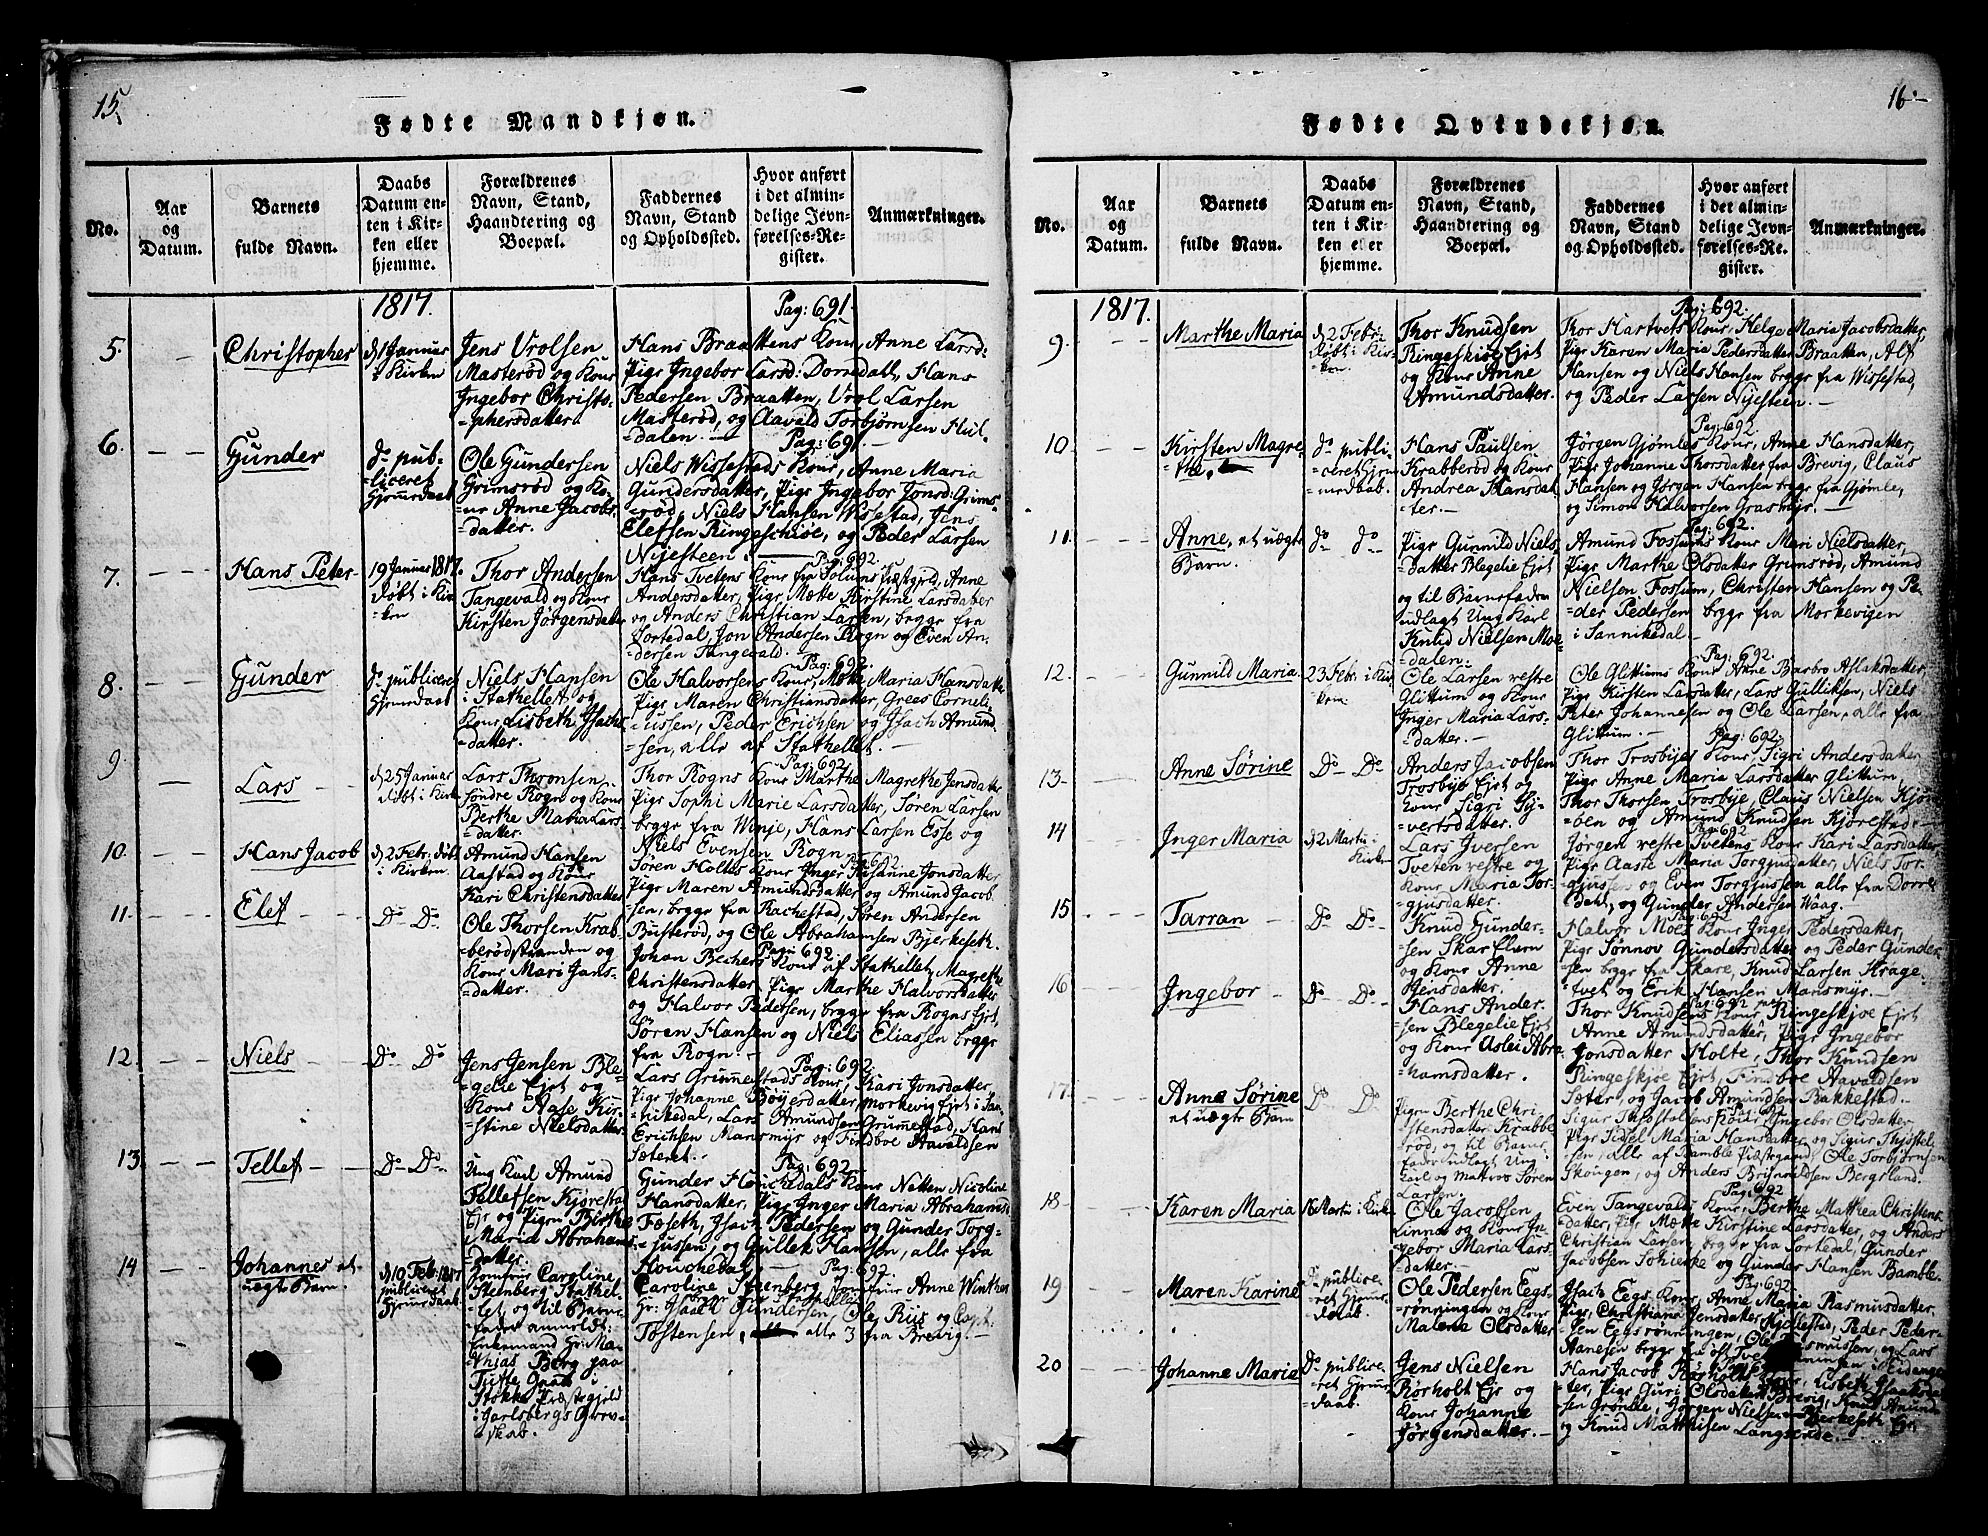 15.
Fødte Mandkjøn.
No.
Aar
og
Datum.
Barnets
fulde Navn.
Daabs
Datum en-
ten i Kir-
ken eller
hjemme.
Forældrenes
Navn, Stand,
Haandtering og
Boepæl.
Faddernes
Navn, Stand
og Opholdssted.
Hvor anført
i det almin-
delige Jevn-
førelses-Re-
gister.
Anmærkninger.
1817.
Pag: 691.
5.
Christopher
d 1 Januar
i Kirken
Jens Vrolsen
Masterød og Kone
Ingebor Christo-
=phersdatter.
Hans Braattens Kone, Anne Larsd:
Pige Ingebor Larsd: Dorredal, Hans
Pedersen Braatten, Vrol Larsen
Masterød, og Aavald Torbjørnsen Hul-
=dalen.
Pag: 691.
6.
Gunder
do pub-
=liceret
Hjemedaab
Ole Gundersen
Grimsrød og Ko-
=ne Anne Jacobs-
=datter.
Niels Wissestads Kone, Anne Maria
Gundersdatter, Pige Ingebor Jonsd: Grims-
=rød, Niels Hansen Wissestad, Jens
Elefsen Ringeschiøe, og Peder Larsen
Nyesteen.
Pag: 692.
7.
Hans Peter
19 Januar 1817.
døbt i Kir-
=ken
Thor Andersen
Tangevald og Kone
Kirsten Jørgensdatter
Hans Tvetens Kone fra Solums Præstegjeld, Anne
Andersdatter, Pige Mætte Kirstine Larsdatter
og Anders Christian Larsen, begge fra
Sortedal, Jon Andersen Rogn og Even An-
dersen Tangevald.
Pag: 692.
8.
Gunder
do publiceret
Hjemedaab
Niels Hansen
i Stathellet og
Kone Lisbeth Isachs-
=datter.
Ole Halvorsens Kone, Mætte Maria Hansdatter
Pige Maren Christiansdatter, Grees Corneli-
=ussen, Peder Erichsen og Isach Amund-
=sen, alle af Stathellet.
Pag: 692
9.
Lars
d 25 Januar
døbt i Kirken
Lars Thronsen
søndre Rogn og Kone
Berthe Maria Lars-
=datter.
Thor Rogns Kone Marthe Magrethe Jensdatter
Pige Sophi Marie Larsdatter, Søren Larsen
begge fra Winje, Hans Larsen Esse og
Niels Evensen Rogn
Pag: 692
10.
Hans Jacob
d 2 Febr: døbt
i Kirken
Amund Hansen
Aastad og Kone
Kari Christensdatter
Søren Holtes Kone Inger Susanne Jonsdatter
Pige Maren Amundsdatter og Amund Jacob
=sen, begge fra Rachestad, Søren Andersen
Busterød, og Ole Abrahamsen Bjerkeseth.
Pag: 692.
11.
Elef
Do Do
Ole Thorsen Krab-
berødstranden og
Kone Mari Jans-
=datter.
Johan Bechers Kone af Stathellet, Magrethe
Christensdatter, Pige Marthe Halvorsdatter
og Halvor Pedersen, begge fra Rogns Ejet,
Søren Hansen og Niels Eliassen begge
fra Rogn.
Pag: 692
12.
Niels
Do Do
Jens Jensen Ble-
=gelie Ejet og
Kone Aase Kir-
=stine Nielsdatter.
Lars Grummestads Kone, Kari Jonsdatter,
Pige Johanne Bøyesdatter, Morkevig Ejet i San-
=nikedal, Lars Amundsen Grummestad, Hans
Erichsen Mansmyr og Findboe Aavaldsen
Sæteret.
Pag: 692
13.
Tellef
Do Do
Ung Karl Amund
Tellefsen Kjørestad
Eje og Pigen Birthe
Maria Abrahams-
datter.
Gunder Houchedals Kone Natten Nicoline
Hansdatter, Pige Inger Maria Abrahamsd
Foseth, Isach Pedersen og Gunder Torg-
=jussen, og Gullek Hansen, alle fra
Houchedal.
Pag: 692
14
Johannes et
uægt Barn.
d 10 Feb: 1817
publiceret
Hjemedaab
Jomfrue Caroline
Steenberg Stathel-
let, og til Barne-
fader anmeldt:
Enkemand Hr: Ma-
=thias Borg paa
Tufte Gaard i
Stokke Præstegjeld
i Jarlsbergs Grev-
=skab.
Caroline Steenberg Jomfrue Anne Winther
Hr: Isaach Gundersen Ole Riis og Capt.
Tostensen, alle 3 fra Brevig.
16
Fødte Qvindekjøn.
No.
Aar
og
Datum.
Barnets
fulde Navn.
Daabs
Datum en-
ten i Kir-
ken eller
hjemme.
Forældrenes
Navn, Stand,
Haandtering og
Boepæl.
Faddernes
Navn, Stand
og Opholdssted.
Hvor anført
i det almin-
delige Jevn-
førelses-Re-
gister.
Anmærkninger.
1817.
Pag: 692.
9.
Marthe Maria
d 2 Febr:
døbt i Kir-
=ken.
Thor Knudsen
Ringeskjøe Ejet
og Kone Anne
Amundsdatter.
Thor Hartvets Kone, Helge Maria Jacobsdatter,
Pige Karen Maria Pedersdatter Braatten, Alf
Hansen og Niels Hansen begge fra Wissestad,
og Peder Larsen Nyesteen.
Pag: 692.
10
Kirsten Magre-
the.
do publi-
=ceret Hjem-
=medaab.
Hans Paulsen
Krabberød og Kone
Andrea Hansdat
=ter.
Jørgen Gjømles Kone, Anne Hansdatter,
Pige Johanne Thorsdatter fra Brevig, Claus
Hansen og Jørgen Hansen begge fra Gjømle,
og Simon Halvorsen Grasmyr.
Pag: 692.
11.
Anne, et uægte
Barn.
do do
Pige Gunnild Niels-
datter Blegelie Ejet
og til Barnefader
udlagt Ung Karl
Knud Nielsen Moe-
=dalen.
Amund Fossums Kone Mari Nielsdatter,
Pige Marthe Olsdatter Grimsrød, Amund
Nielsen Fossum, Christen Hansen og Pe-
=der Pedersen begge fra Morkevigen
i Sannikedal
Pag: 692.
12.
Gunnild Maria.
23 Febr: i Kir-
ken.
Ole Larsen vestre
Glittum og Kone
Inger Maria Lars-
=datter.
Ole Glittums Kone Anne Barbro Aslaksdatter,
Pige Kirsten Larsdatter, Lars Gulliksen, Niels
Peter Johannesen og Ole Larsen, alle fra
Glittum.
Pag: 692.
13.
Anne Sørine
Do Do
Anders Jacobsen
Trosbye Ejet og
Kone Sigri Sy-
=vertsdatter.
Thor Trosbyes Kone, Sigri Andersdatter
Pige Anne Maria Larsdatter Glittum,
Thor Thorsen Trosbye, Claus Nielsen Kjøn-
=øen og Amund Knudsen Kjørestad
Pag: 692
14
Inger Maria
d 2 Martii i
Kirken
Lars Iversen
Tveten vestre og
Kone Maria Tor-
=gjusdatter.
Jørgen vestre Tvetens Kone Kari Larsdatter,
Pige Aaste Maria Torgjusdatter, Niels Tor-
=gjussen og Even Torgjussen alle fra Dorre-
dal, og Gunder Andersen Waag.
Pag: 692
15
Tarran
Do Do
Knud Gunder-
sen Skareflaen
og Kone Anne
Jensdatter.
Halvor Moes Kone Inger Pedersdatter,
Pige Sønnov Gundersdatter og Peder Gunder-
=sen begge fra Skare, Knud Larsen Krage-
tvet og Erik Hansen Mansmyr.
Pag: 692
16
Ingebor
Do Do
Hans Ander-
sen Blegelie Ejet
og Kone Aslei Abra-
hamsdatter.
Thor Knudsens Kone Ringeskjoe Ejet
Anne Amundsdatter, Pige Ingebor
Jonsdatter Holte, Thor Knudsen
Ringeskjoe Ejet, Findboe Aavaldsen
Sæter, og Jacob Amundsen Bakkestad.
17.
Anne Sørine
et uægte Barn
Do Do
Pigen Berthe Chri-
stensdatter Krabbe-
rød, og til Barne-
fader udlagt Ung-
Karl og Matros Søren
Larsen.
Sigur Thostallens Kone, Ingebor Olsdatter
Pige Sidsel Maria Hansdatter, og Sigur Thjostel-
sen, alle af Bamble Præstegaard, Ole Torbjørnsen
Skougen, og Anders Brynildsen Bergsland.
Pag: 692
18
Karen Maria
Martii i Kirken
Ole Jacobsen
Linna og Kone In-
gebor Maria Lars-
datter.
Even Tangevalds Kone, Berthe Mathea Christens
=datter, Pige Mætte Kirstine Larsdatter, og Anders
Christian Larsen, begge fra Sortedal, Gunder
Jacobsen Schierke og Gunder Hansen Bamble
Pag: 692
19
Maren Karine
Do publice-
ret Hjemme-
=daab.
Ole Pedersen Eegs-
=rønningen og Kone
Malena Olsdatter
Isach Eegs Kone, Anne Maria Rasmusdatter,
Pige Christiane Jensdatter Kjellestad, Peder Peder-
=sen Eegsrønningen, Ole
20
Johanne Maria
Do publice-
ret Hjemme-
=daab.
Jens Nielsen
Rørholt Eje og
Kone Johanne
Jørgensdatter.
Hans Jacob Rørholts
=ter, Pige Guri Olsdatter Brevig, Knud Amund-
sen Grønlie, Jørgen Nielsen Bierkeseth Eje
og Knud Matthisen Langsende.